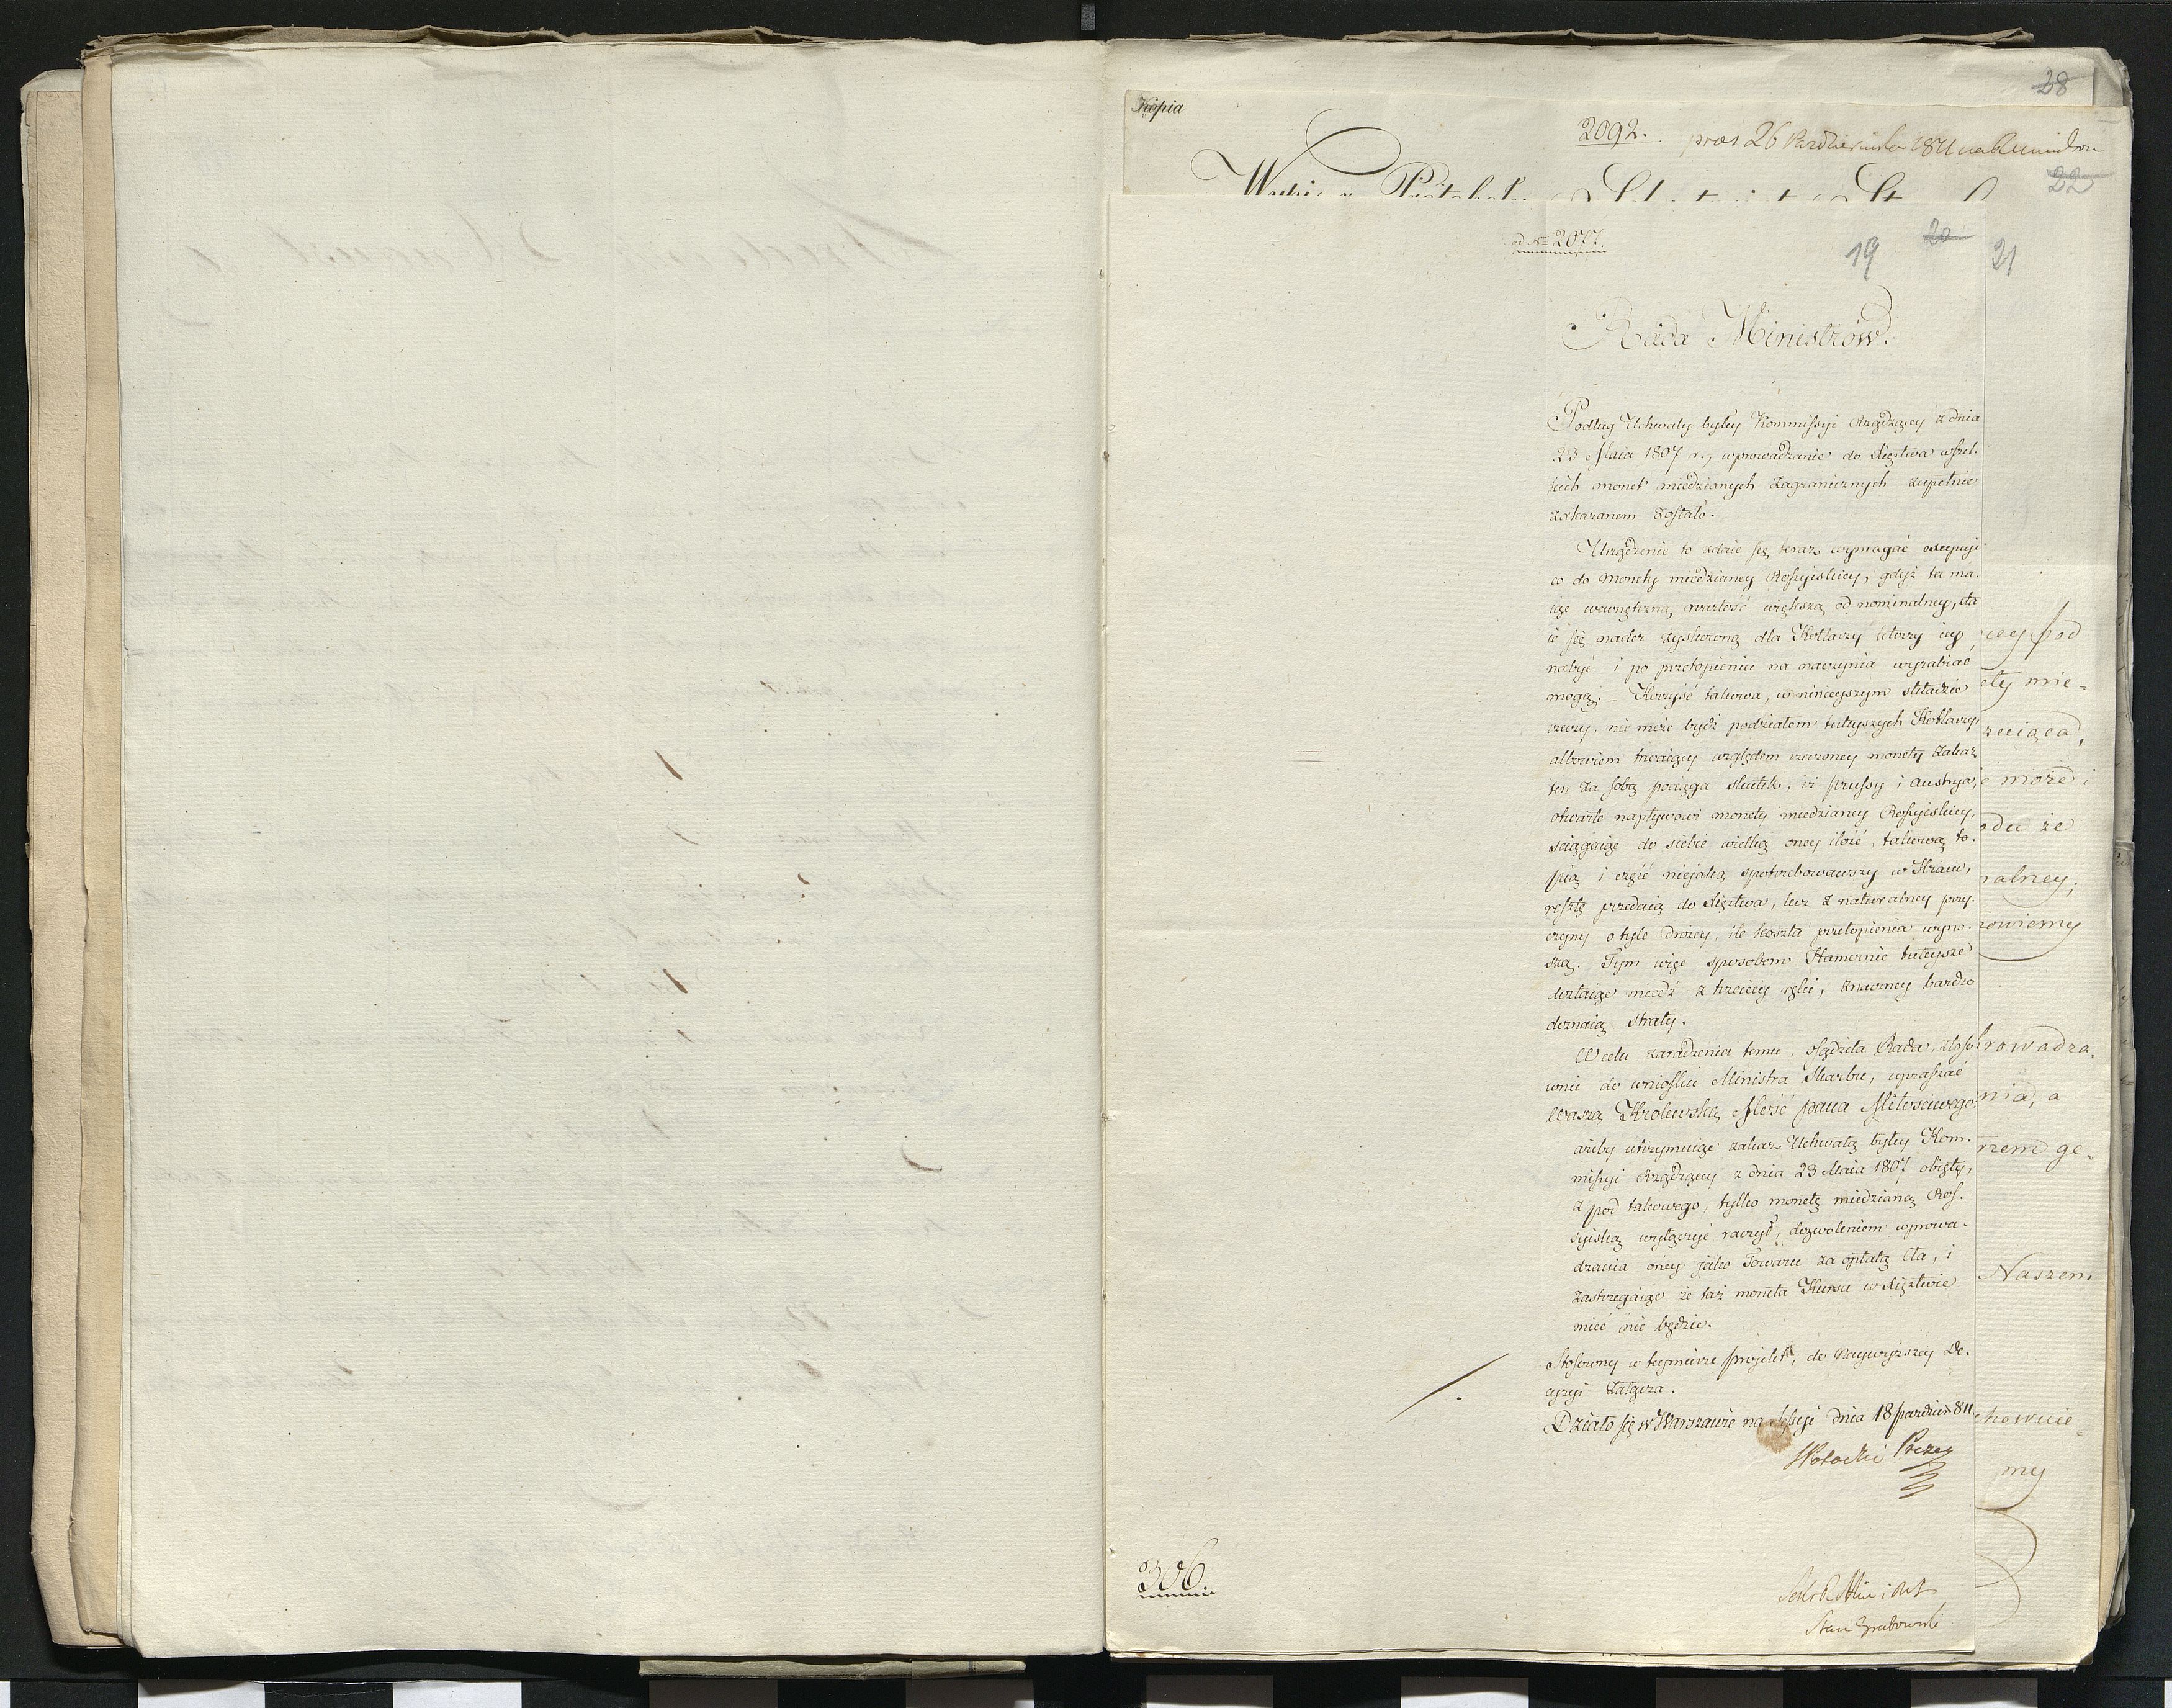 28
Kopia
2092. præs 26 Października 1811 na R Ministrow
22
ad Nr 2077.
19 20 21
Rada Ministrów.
Podług Uchwały byłey Kommissyi Rządzącey z dnia
23 Maia 1807 r., wprowadzanie do Xięztwa wszel-
kich monet miedzianych zagranicznych zupełnie
zakazanem zostało.
Urządzenie to zdaie się teraz wymagać excepcyi
co do monety miedzianey Rossyiskiey, gdyż ta ma-
iąc wewnętrzną wartość większą od nominalney, sta
ie się nader zyskowną dla Kotlarzy którzy iey
nabyć i po przetopieniu na naczynia wyrabiać
mogą. – Korzyść takowa, w ninieyszym składzie
rzeczy, nie może bydź podziałem tuteyszych Kotlarzy,
albowiem trwaiący względem rzeczoney monety zakaz
ten za sobą pociąga skutek, iż Prussy i Austrya,
otwarte napływowi monety miedzianey Rossyiskiey,
ściągaiąc do siebie wielką oney ilość, takową to-
pią i część niejaką spotrzebowawszy w Kraiu,
resztę przedaią do Xięztwa, lecz z naturalney przy-
czyny o tyle drożey, ile koszta przetopienia wyno-
szą. Tym więc sposobem Hamernie tuteysze
dostaiąc miedź z trzeciey ręki, znaczney bardzo
doznaią straty.
W celu zaradzenia temu, osądziła Rada, stoso-
wnie do wniosku Ministra Skarbu, upraszać
Waszą Królewską Mość Pana Miłościwego:
ażeby utrzymuiąc zakaz Uchwałą byłey Kom-
missyi Rządzącey z dnia 23 Maia 1807 obięty,
z pod takowego, tylko monetę miedzianą Ros-
syiską wyłączyć raczył, dozwoleniem wprowa-
dzania oney jako Towaru za opłatą Cła, i
zastrzegaiąc że taż moneta Kursu w Xięztwie
mieć nie będzie.
Stosowny w teymierze projekt, do Naywyższey De-
cyzyi załącza.
Działo się w Warszawie na Sessyi dnia 18 paździer 811
SPotocki Prezes
306.
Stan Grabowski
cey pod
ety mie-
zeciąca,
e może i
odu że
nalney;
nowiemy
rowadza-
nia, a
rzem ge-
Naszem
howuie
my